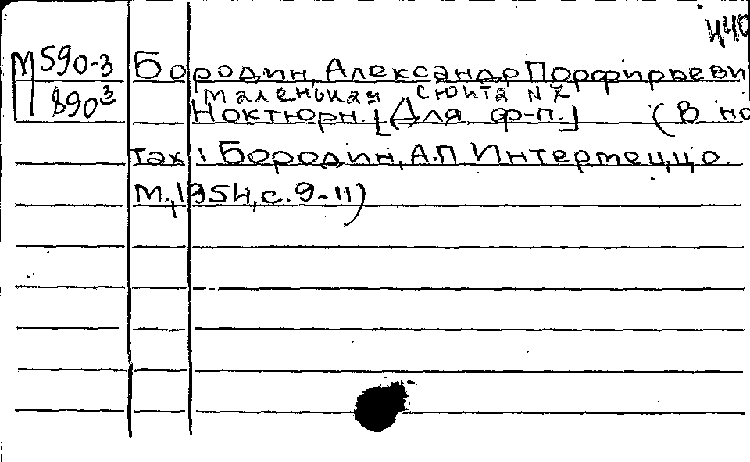 440
М 590-3 Бородин, Александр Порфирьеви
890³ маленькая сюита N 7
Ноктюрн. [Для ф-п.] (В но
тах: Бородин, А.П. Интермеццо
М., 1954, с. 9-11)